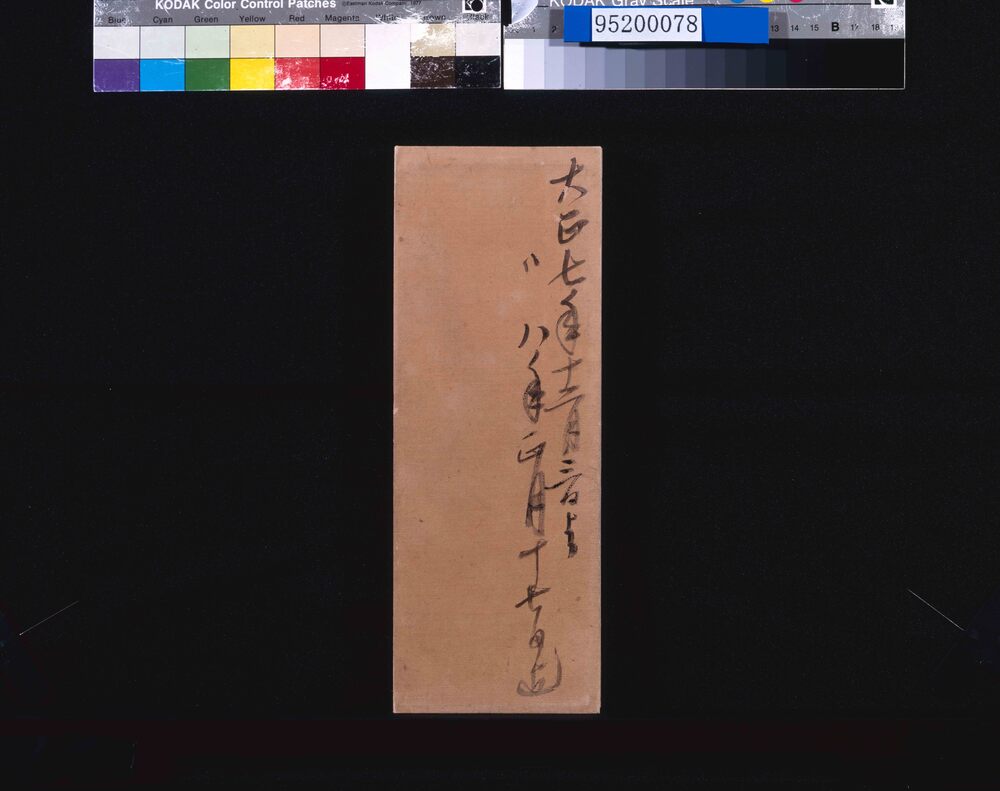 KODAK Color Control Patches ©Eastman Kodak Company, 1977
Blue Cyan Green Yellow Red Magenta White Brown Black
KODAK Gray Scale
95200078
13 14 15 B 17 18
大正七年十二月三日より
〃八年正月十七日迄